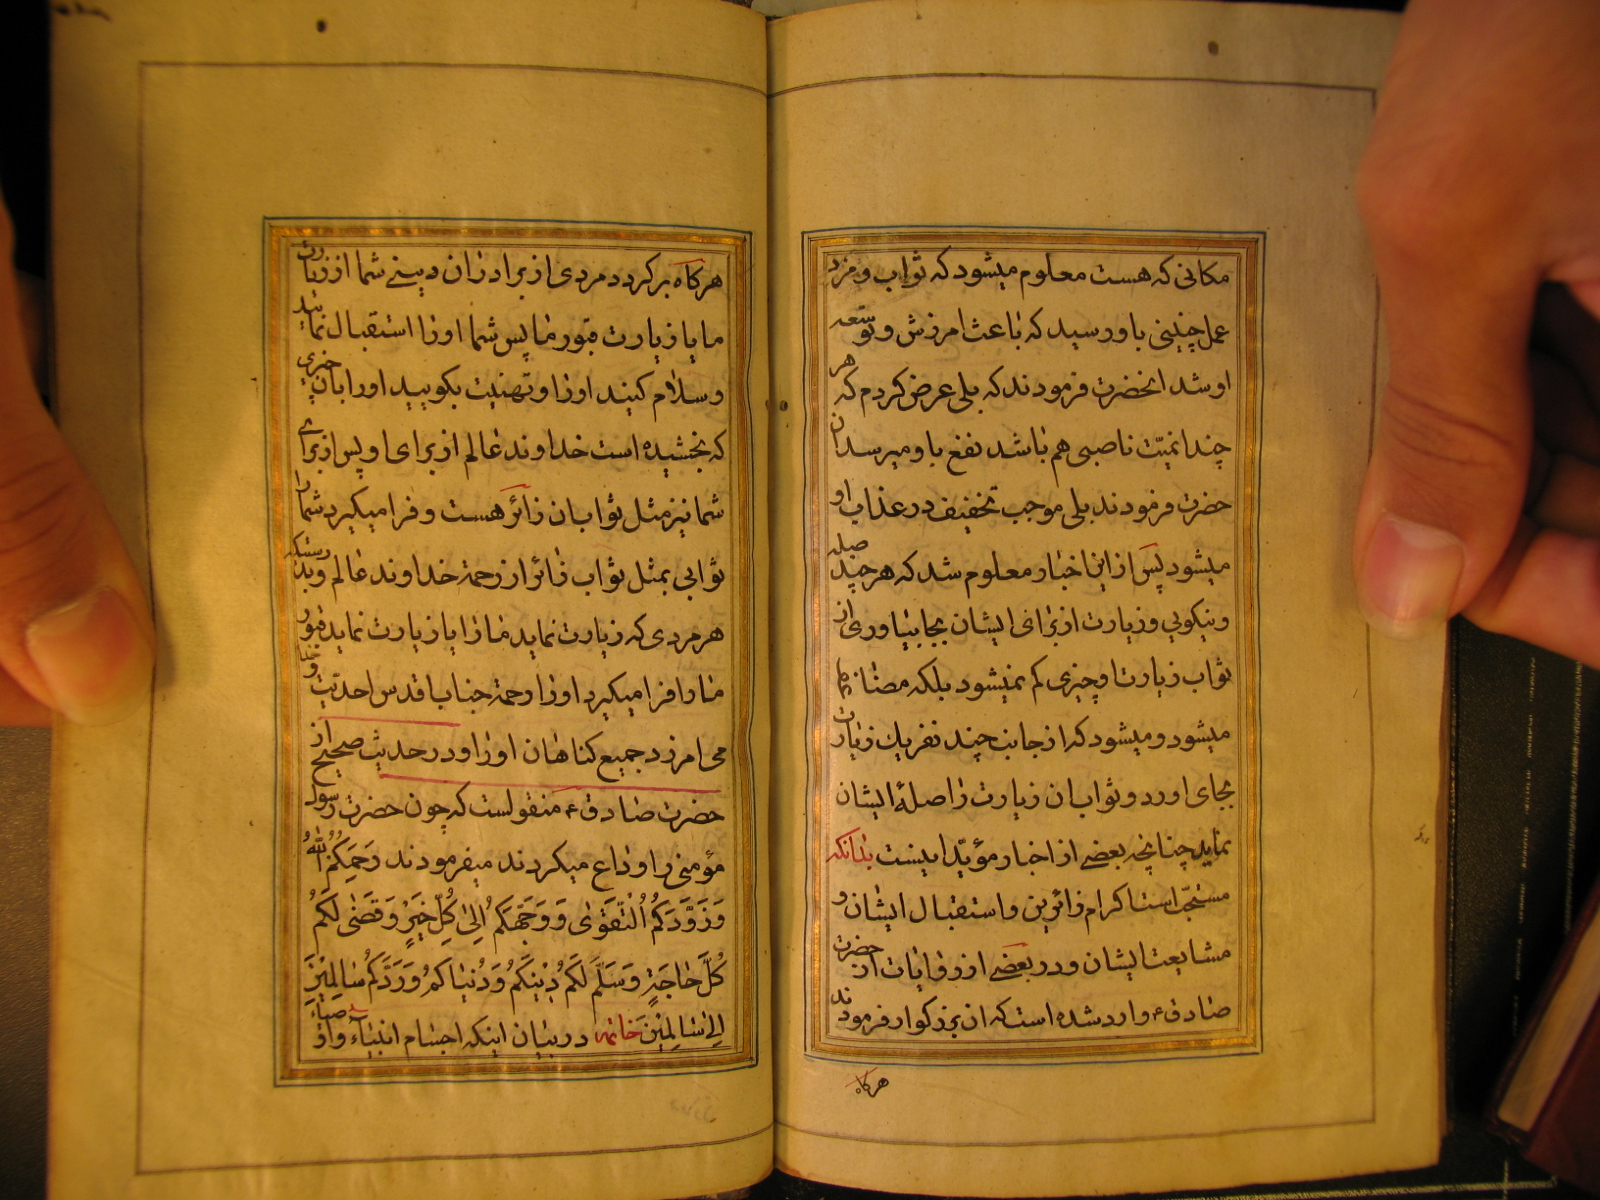 مکانی که هست معلوم میشود که ثواب و مزد
عمل چنینی باو رسید که باعث امرزش و توسعه
او شد انحضرت فرمودند که بلی عرض کردم که هر
چند ان میت ناصبی هم باشد نفع باو میرسد ان
حضرت فرمودند بلی موجب تخفیف در عذاب او
میشود پس از این اخبار معلوم شد که هر چند صله
و نیکویی و زیارت از برای ایشان بجا بیاوری از
ثواب زیارت او چیزی کم نمیشود بلکه مضاعف هم
میشود و میشود که از جانب چند نفر یك زیارت
بجای اورد و ثواب ان زیارت را صلهٔ ایشان
نماید چنانچه بعضے از اخبار مؤید اینست بدانکه
مستحب است اکرام زائرین و استقبال ایشان و
مشایعت ایشان و در بعضے از روایات از حضرت
صادق ع وارد شده است که ان بزرکوار فرمودند
هرکاه
هرکاه برکردد مردی از برادران دینے شما از زیارت
ما یا زیارت قبور ما پس شما او را استقبال نمائید
و سلام کنید او را و تهنیت بکویید او را بان چیزی
که بخشیده است خداوند عالم از برای او پس از برای
شما نیز مثل ثواب ان زائر هست و فرا میکیرد شما را
ثوابی بمثل ثواب زائر از رحمة خداوند عالم و بدرستیکه
هر مردی که زیارت نماید ما را یا زیارت نماید قبور
ما را فرا میکیرد او را رحمة جناب اقدس احدیت و خدا
می امرزد جمیع کناهان او را و در حدیث صحیح از
حضرت صادق ع منقولست که چون حضرت رسول
مؤمنی را وداع میکردند میفرمودند رَحِمَکُمُ اللهُ
وَ زَوَّدَکُمُ التَّقْوٰی وَ وَجَّهَکُمْ اِلیٰ کُلِّ خَیْرٍ وَ قَضٰی لَکُمْ
کُلَّ حٰاجَةٍ وَ سَلَّمَ لَکُمْ دٖینَکُمْ وَ دُنْیٰاکُمْ وَ رَدَّکُمْ سٰالِمِیْنَ
اِلیٰ سٰالِمِیْنَ خاتمه در بیان اینکه اجساد انبیآء و اوصیآء